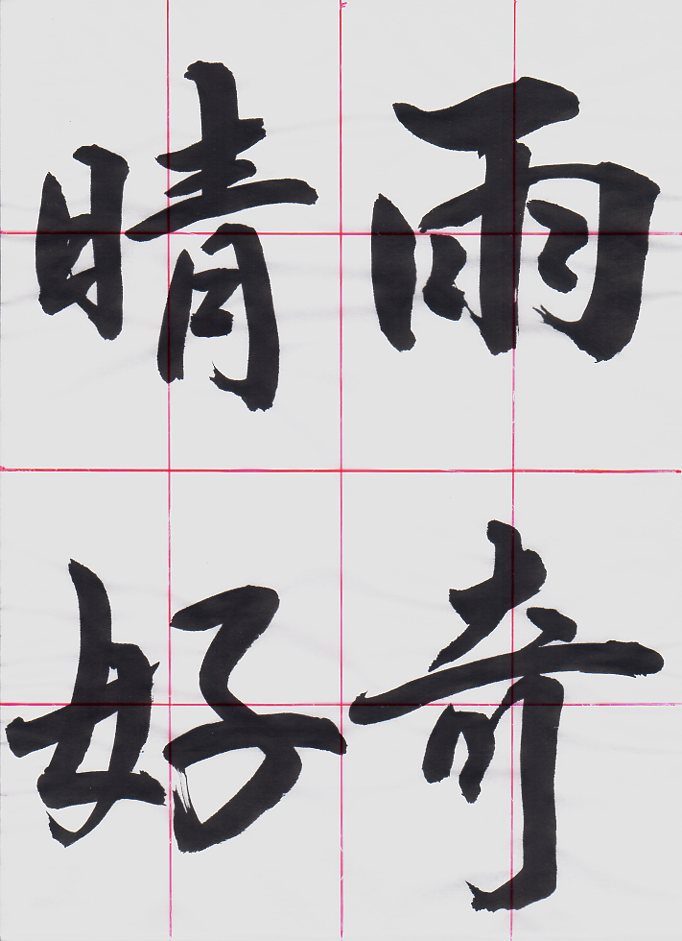 雨奇
晴好